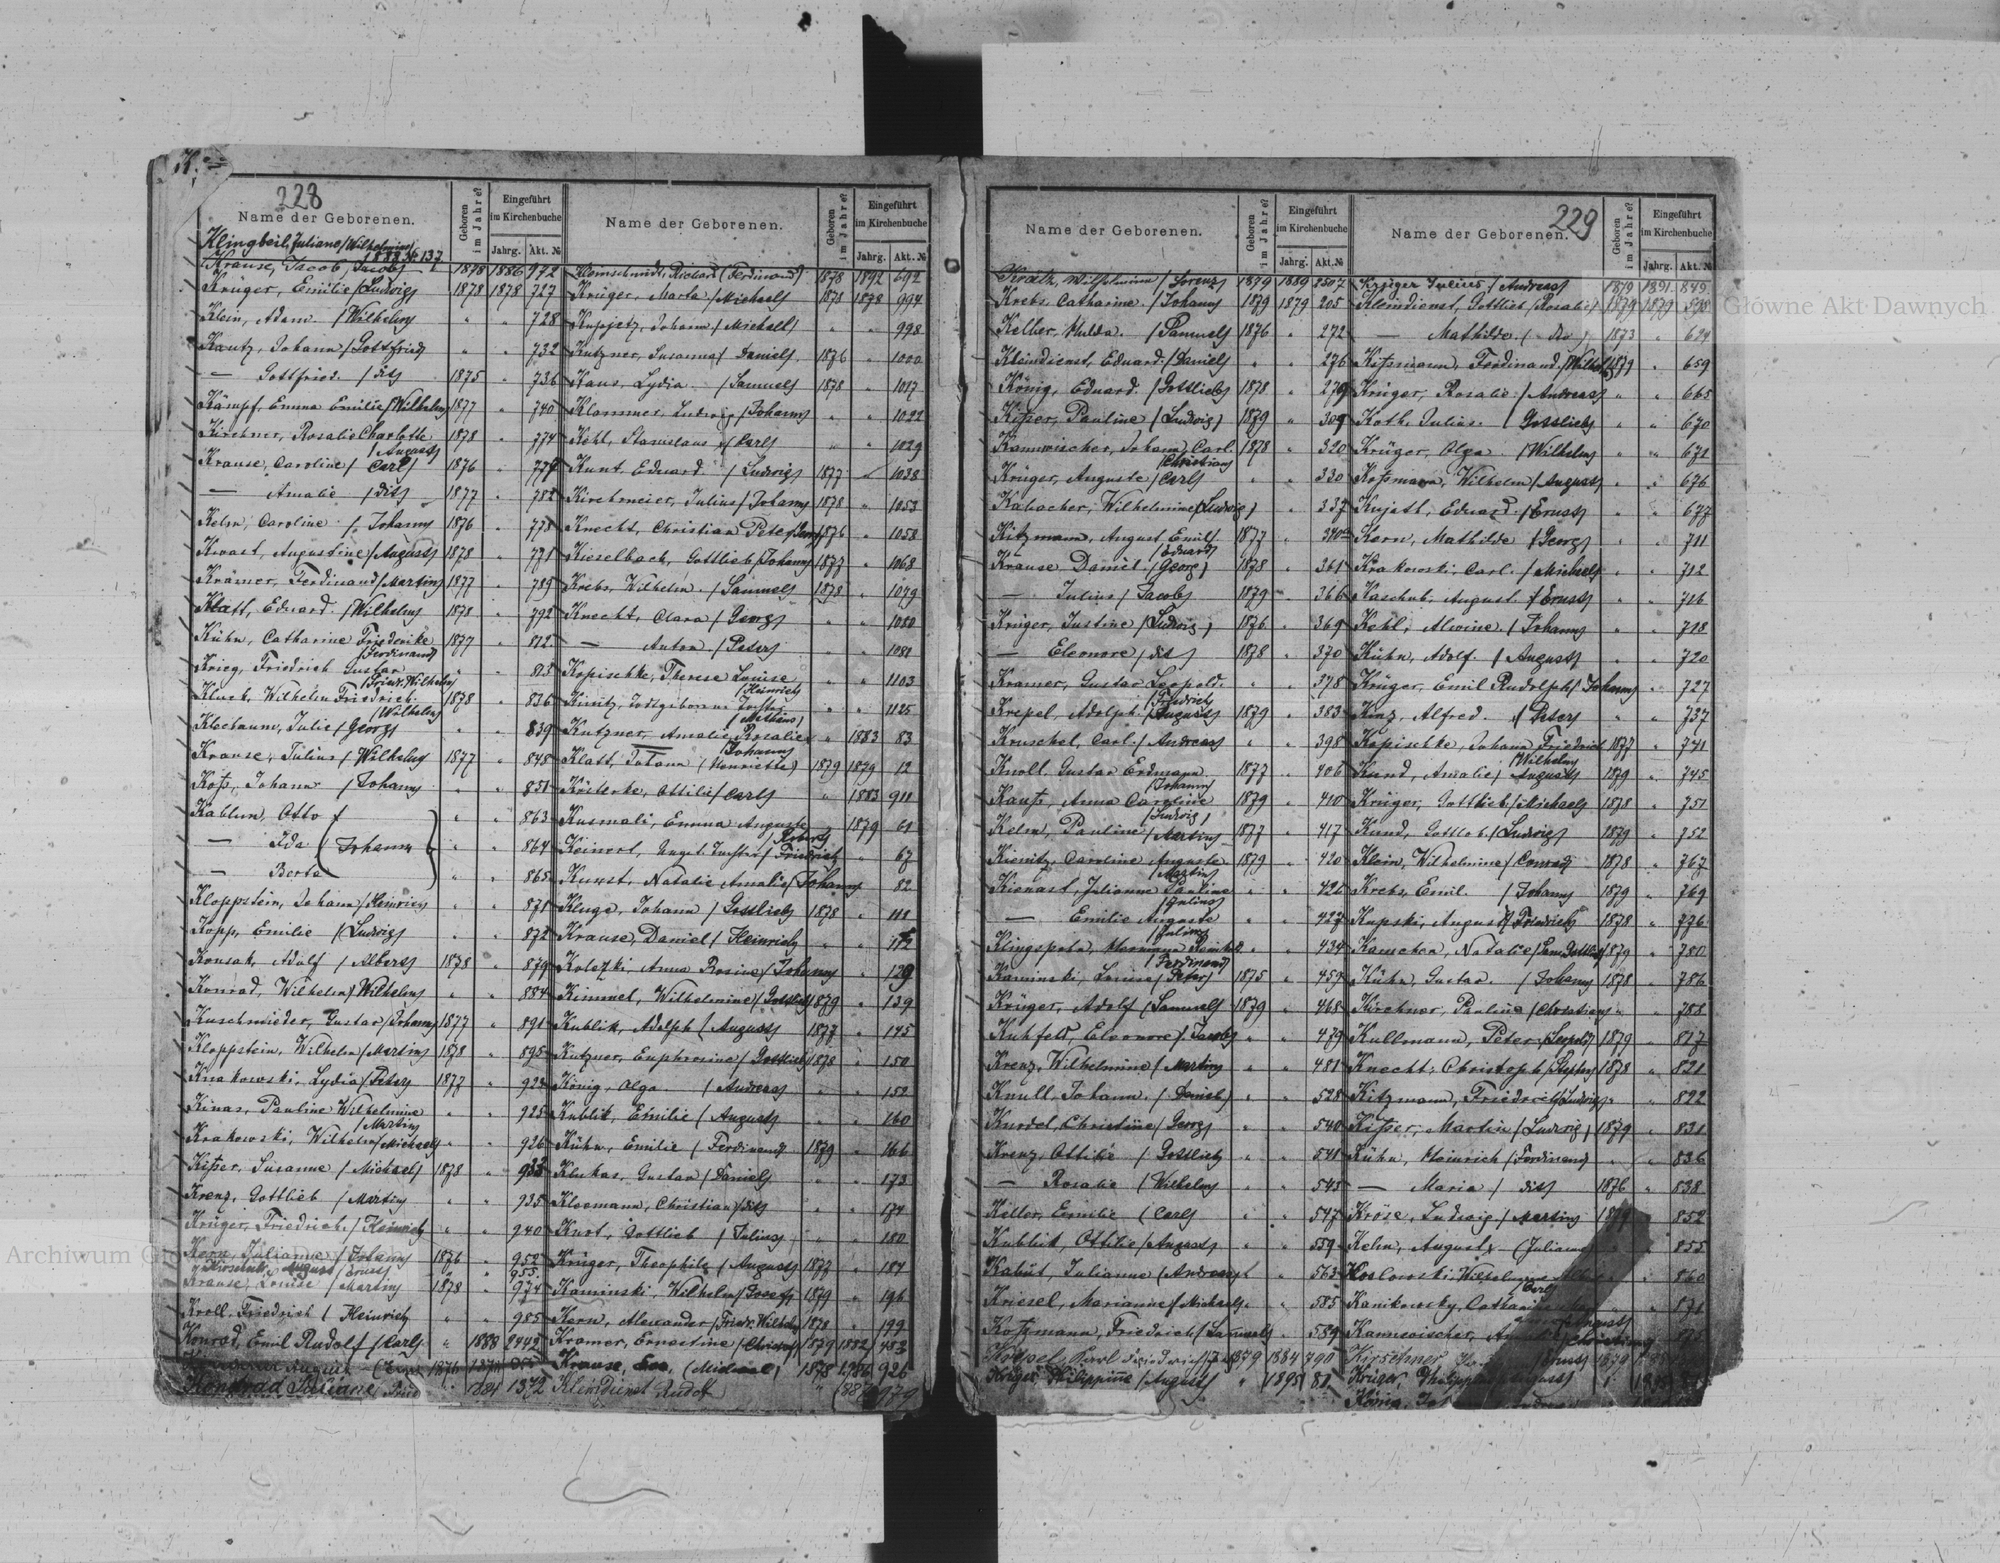 K.
228
Name der Geborenen.
Geboren im Jahre?
Eingeführt im Kirchenbuche
Jahrg. Akt. №
Klingbeil, Juliane /Wilhelmine/
1883 № 137
Krause, Jacob, /Jacob/ 1878 1886 972
Krüger, Emilie /Ludwig/ 1878 1878 727
Klein, Adam /Wilhelm/ " " 728
Kautz, Johann /Gottfried/ " " 732
— Gottfried /dito/ 1875 " 736
Kämpf, Emma Emilie /Wilhelm/ 1877 " 740
Kirchner, Rosalie Charlotte 1878 " 774
/August/
Krause, Caroline / Carl / 1876 " 777
— Amalie /dito/ 1877 " 782
Kelm, Caroline / Johann/ 1876 " 778
Kwast, Augustine /August/ 1878 " 781
Krämer, Ferdinand /Martin/ 1877 " 789
Klatt, Eduard /Wilhelm/ 1878 " 792
Kühn, Catharine Friederike 1877 " 812
/Ferdinand/
Krieg, Friedrich Gustav " " 815
/Friedr. Wilhelm/
Kluck, Wilhelm Friedrich 1878 " 836
/Wilhelm/
Klochaum, Julie /Georg/ " " 839
Krause, Julius /Wilhelm/ 1877 " 848
Koß, Johann /Johann/ " " 851
Kablun, Otto " " 863
— Ida /Johann/ " " 864
— Berta " " 865
Kloppstein, Johann /Heinrich/ " " 871
Kopp, Emilie /Ludwig/ " " 872
Konsak, Adolf /Albert/ 1878 " 879
Konrad, Wilhelm /Wilhelm/ " " 884
Kuschmieder, Gustav /Johann/ 1877 " 891
Kloppstein, Wilhelm /Martin/ 1878 " 895
Krakowski, Lydia /Peter/ 1877 " 923
Kinas, Pauline Wilhelmine " " 925
/Martin/
Krakowski, Wilhelm /Michael/ " " 926
Kißer, Susanne /Michael/ 1878 " 933
Krenz, Gottlieb /Martin/ " " 935
Krüger, Friedrich /Heinrich/ " " 940
Kern, Julianne /Johann/ 1876 " 952
August /Ernst/ " 955
Krause, Louise /Martin/ 1878 " 974
Kroll, Friedrich / Heinrich " " 985
Konrad, Emil Rudolf /Carl/ " 1888 2442
Konrad Juliane 1884 1372
Name der Geborenen.
Geboren im Jahre?
Eingeführt im Kirchenbuche
Jahrg. Akt. №
Kleinschmidt, Richard (Ferdinand) 1878 1892 692
Krüger, Marta /Michael/ 1878 1878 994
Kupjetz, Johann /Michael/ " " 998
Kutzner, Susanna / Daniel/ 1876 " 1000
Kaus, Lydia /Samuel/ 1878 " 1017
Klammer, Ludwig /Johann/ " " 1022
Kehl, Stanislaus /Carl/ " " 1029
Kunt Eduard /Ludwig/ 1877 " 1038
Kirchmeier, Julius /Johann/ 1878 " 1053
Knecht, Christian Peter /Georg/ 1876 " 1058
Kieselbach, Gottlieb /Johann/ 1877 " 1068
Krebs, Wilhelm /Samuel/ 1878 " 1079
Knecht, Clara /Georg/ " " 1080
— Anton /Peter/ " " 1081
Kopischke, Therese Louise " " 1103
/Heinrich/
Kinitz, Todtgeborene Tochter " " 1125
/Mathias/
Kutzner, Amalie Rosalie " 1883 83
/Johann/
Klatt, Johann (Henriette) 1879 1879 12
Kösterke, Ottilie /Carl/ " 1883 911
Kusmali, Emma Auguste " 1879 61
/Robert/
Keinert, Unget. Tochter /Friedrich/ " " 67
Kunst, Natalie Amalie /Johann/ " " 82
Kluge, Johann /Gottlieb/ 1878 " 111
Krause, Daniel /Heinrich/ " " 112
Koletzki, Anna Rosine /Johann/ " " 129
Kimmel, Wilhelmine /Gottlieb/ 1879 " 139
Kublik, Adolph /August/ 1877 " 145
Kutzner, Euphrosine /Gottlieb/ 1878 " 150
König, Olga /Andreas/ " " 152
Kublik, Emilie /August/ " " 160
Kühn, Emilie /Ferdinand/ 1879 " 166
Klukas, Gustav /Daniel/ " " 173
Kloomann, Christian /dito/ " " 174
Knot, Gottlieb /Julius/ " " 180
Krüger, Theophile /August/ 1877 " 187
Kaminski, Wilhelm /Josef/ 1879 " 196
Kern, Alexander /Friedr. Wilhelm/ 1878 " 199
Kramer, Ernestine /Christof/ 1879 1882 983
Krause, Eva (Michael) 1878 1886 926
Kleindienst Rudolf " 979
Name der Geborenen.
Geboren im Jahre?
Eingeführt im Kirchenbuche
Jahrg. Akt. №
Kratz, Wilhelmine /Lorenz/ 1879 1889 2507
Krebs, Catharine /Johann/ 1879 1879 205
Kelber, Hulda /Samuel/ 1876 " 272
Kleindienst, Eduard /Daniel/ " " 276
König, Eduard /Gottlieb/ 1878 " 279
Kißer, Pauline /Ludwig/ 1879 " 309
Kannwischer, Johann Carl 1878 " 320
/Christian/
Krüger, Auguste /Carl/ " " 330
Kabacher, Wilhelmine /Ludwig/ " " 337
Kitzmann, August Emil 1877 " 340
/Eduard/
Krause Daniel /Georg/ 1878 " 361
— Julius /Jacob/ 1879 " 366
Krüger, Justine /Ludwig/ 1876 " 369
— Eleonore /dito/ 1878 " 370
Kramer, Gustav Leopold " " 378
/Friedrich/
Krepel, Adolph /August/ 1879 " 383
Kruschel, Carl /Andreas/ " " 398
Knoll, Gustav Erdmann 1877 " 406
/Johann/
Kautz, Anna Caroline 1879 " 410
/Ludwig/
Kelm, Pauline /Martin/ 1877 " 417
Kienitz, Caroline Auguste 1879 " 420
/Martin/
Kienast, Julianne Pauline " " 421
/Julius/
— Emilie Auguste " " 427
/Julius/
Klingspohn, Hermann Reinhold " " 434
/Ferdinand/
Kaminski, Louise /Peter/ 1875 " 459
Krüger, Adolf /Samuel/ 1879 " 468
Kuhfeld, Eleonore /Jacob/ " " 479
Krenz, Wilhelmine /Martin/ " " 481
Knull, Johann /Daniel/ " " 528
Kurdel, Christine /Georg/ " " 540
Krenz, Ottilie /Gottlieb/ " " 541
— Rosalie /Wilhelm/ " " 545
Keller, Emilie /Carl/ " " 547
Kublik, Ottilie /August/ " " 559
Kabüt, Julianne /Andreas/ " " 563
Kriesel, Marianne /Michael/ " " 585
Kotzmann, Friedrich /Samuel/ " " 589
Karl Friedrich 1879 1884 790
Krüger Philippine /August/ " 1895 81
229
Name der Geborenen.
Geboren im Jahre?
Eingeführt im Kirchenbuche
Jahrg. Akt. №
Krüger Julius /Andreas/ 1879 1891 849
Kleindienst, Gottlieb /Rosalie/ 1879 1879 598
— Mathilde (dto) 1873 " 624
Koßmann, Ferdinand /Wilhelm/ 1879 " 659
Krüger, Rosalie /Andreas/ " " 665
Koth, Julius /Gottlieb/ " " 670
Krüger, Olga /Wilhelm/ " " 672
Koßmann, Wilhelm /August/ " " 676
Kujath, Eduard /Ernst/ " " 677
Kern, Mathilde /Georg/ " " 711
Krakowski, Carl /Michael/ " " 712
Kaschub, August /Ernst/ " " 716
Kehl, Alwine /Johann/ " " 718
Kühn, Adolf /August/ " " 720
Krüger, Emil Rudolph /Johann/ " " 727
Kinz, Alfred /Peter/ " " 737
Kopischke, Johann Friedrich 1877 " 741
/Wilhelm/
Kund, Amalie /August/ 1879 " 745
Krüger, Gottlieb /Michael/ 1878 " 751
Kund, Gottlob /Ludwig/ 1879 " 752
Klein, Wilhelmine /Conrad/ 1878 " 767
Krebs, Emil /Johann/ 1879 " 769
Kupski, August /Friedrich/ 1878 " 776
Kamchen, Natalie /Sam. Gottlieb/ 1879 " 780
Kühn, Gustav /Johann/ 1878 " 786
Kirchner, Pauline /Christian/ " " 788
Kullmann, Peter /Leopold/ 1879 " 817
Knecht, Christoph /Stephan/ 1878 " 821
Kitzmann, Friedrich /Ludwig/ " " 822
Kißer, Martin /Ludwig/ 1879 " 831
Kühn, Heinrich /Ferdinand/ " " 836
— Maria /dito/ 1876 " 838
Kröse, Ludwig /Martin/ 1879 " 852
Kelm, August (Juliane) " 855
Koslowski, Wilhelmine " 860
/Carl/
Kanikowsky, Catharine " 871
Kannwischer, /Christian/ 875
Kirschner /Ernst/ 1879
Krüger, Philippine /August/
König, Joh
Archiwum Główne Akt Dawnych